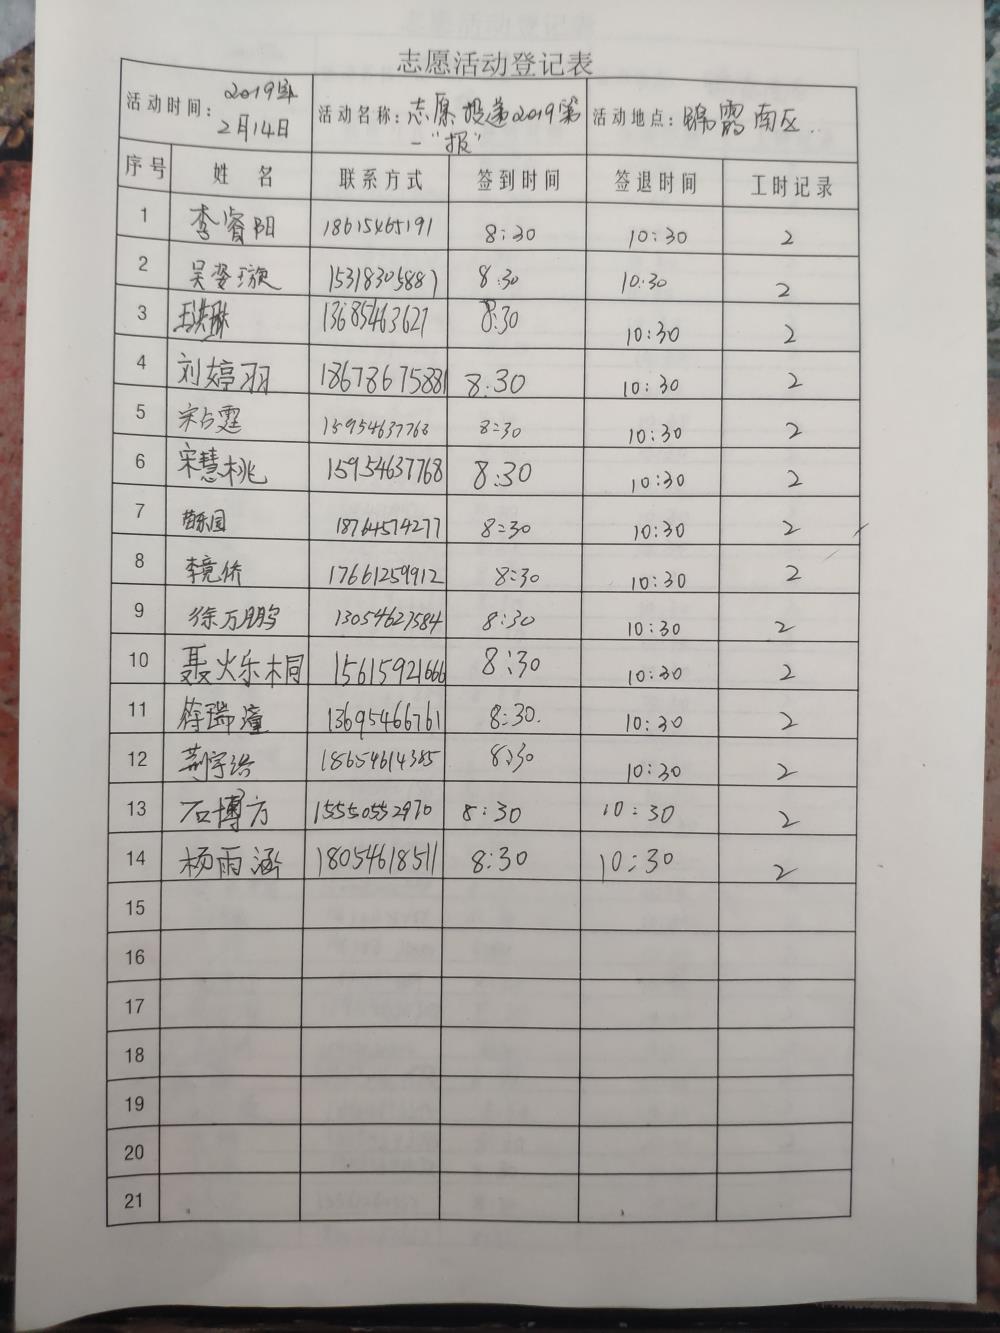 志愿活动登记表
活动时间: 2019年2月14日 活动名称: 志愿投递2019第一"报" 活动地点: 锦霞南区
序号 姓名 联系方式 签到时间 签退时间 工时记录
1 李睿阳 18615465191 8:30 10:30 2
2 吴姿璇 15318305887 8:30 10:30 2
3 13685463627 8:30 10:30 2
4 刘婷羽 18678675881 8:30 10:30 2
5 宋占霆 15954637768 8:30 10:30 2
6 宋慧桃 15954637768 8:30 10:30 2
7 18764574277 8:30 10:30 2
8 李竟侨 17661259912 8:30 10:30 2
9 徐万鹏 13054627584 8:30 10:30 2
10 聂烁桐 15615921666 8:30 10:30 2
11 符瑞潼 13695466761 8:30. 10:30 2
12 荆宇浩 18654614385 8:30 10:30 2
13 石博方 15550552970 8:30 10:30 2
14 杨雨涵 18054618511 8:30 10:30 2
15
16
17
18
19
20
21